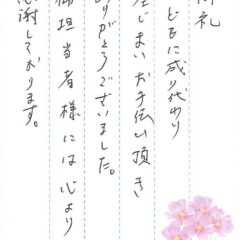 御礼
どもに成り代わり
じまいお手伝い頂き
りがとうございました。
御担当者様には心より
感謝しております。